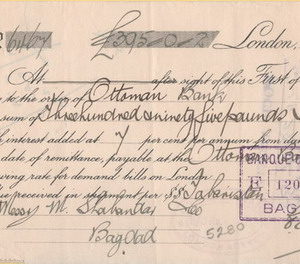 6467 £395-0-2 London,
At after sight of this First of
to the order of Ottoman Bank
sum of Three hundred & ninety five pounds
interest added at 7 per cent per annum from
date of remittance, payable at the Ottoman
ing rate for demand bills on London
received in shipment per S/S Takeristan
BANQUE
E 120
BAG
Messrs M. & Co
Bagdad
5280